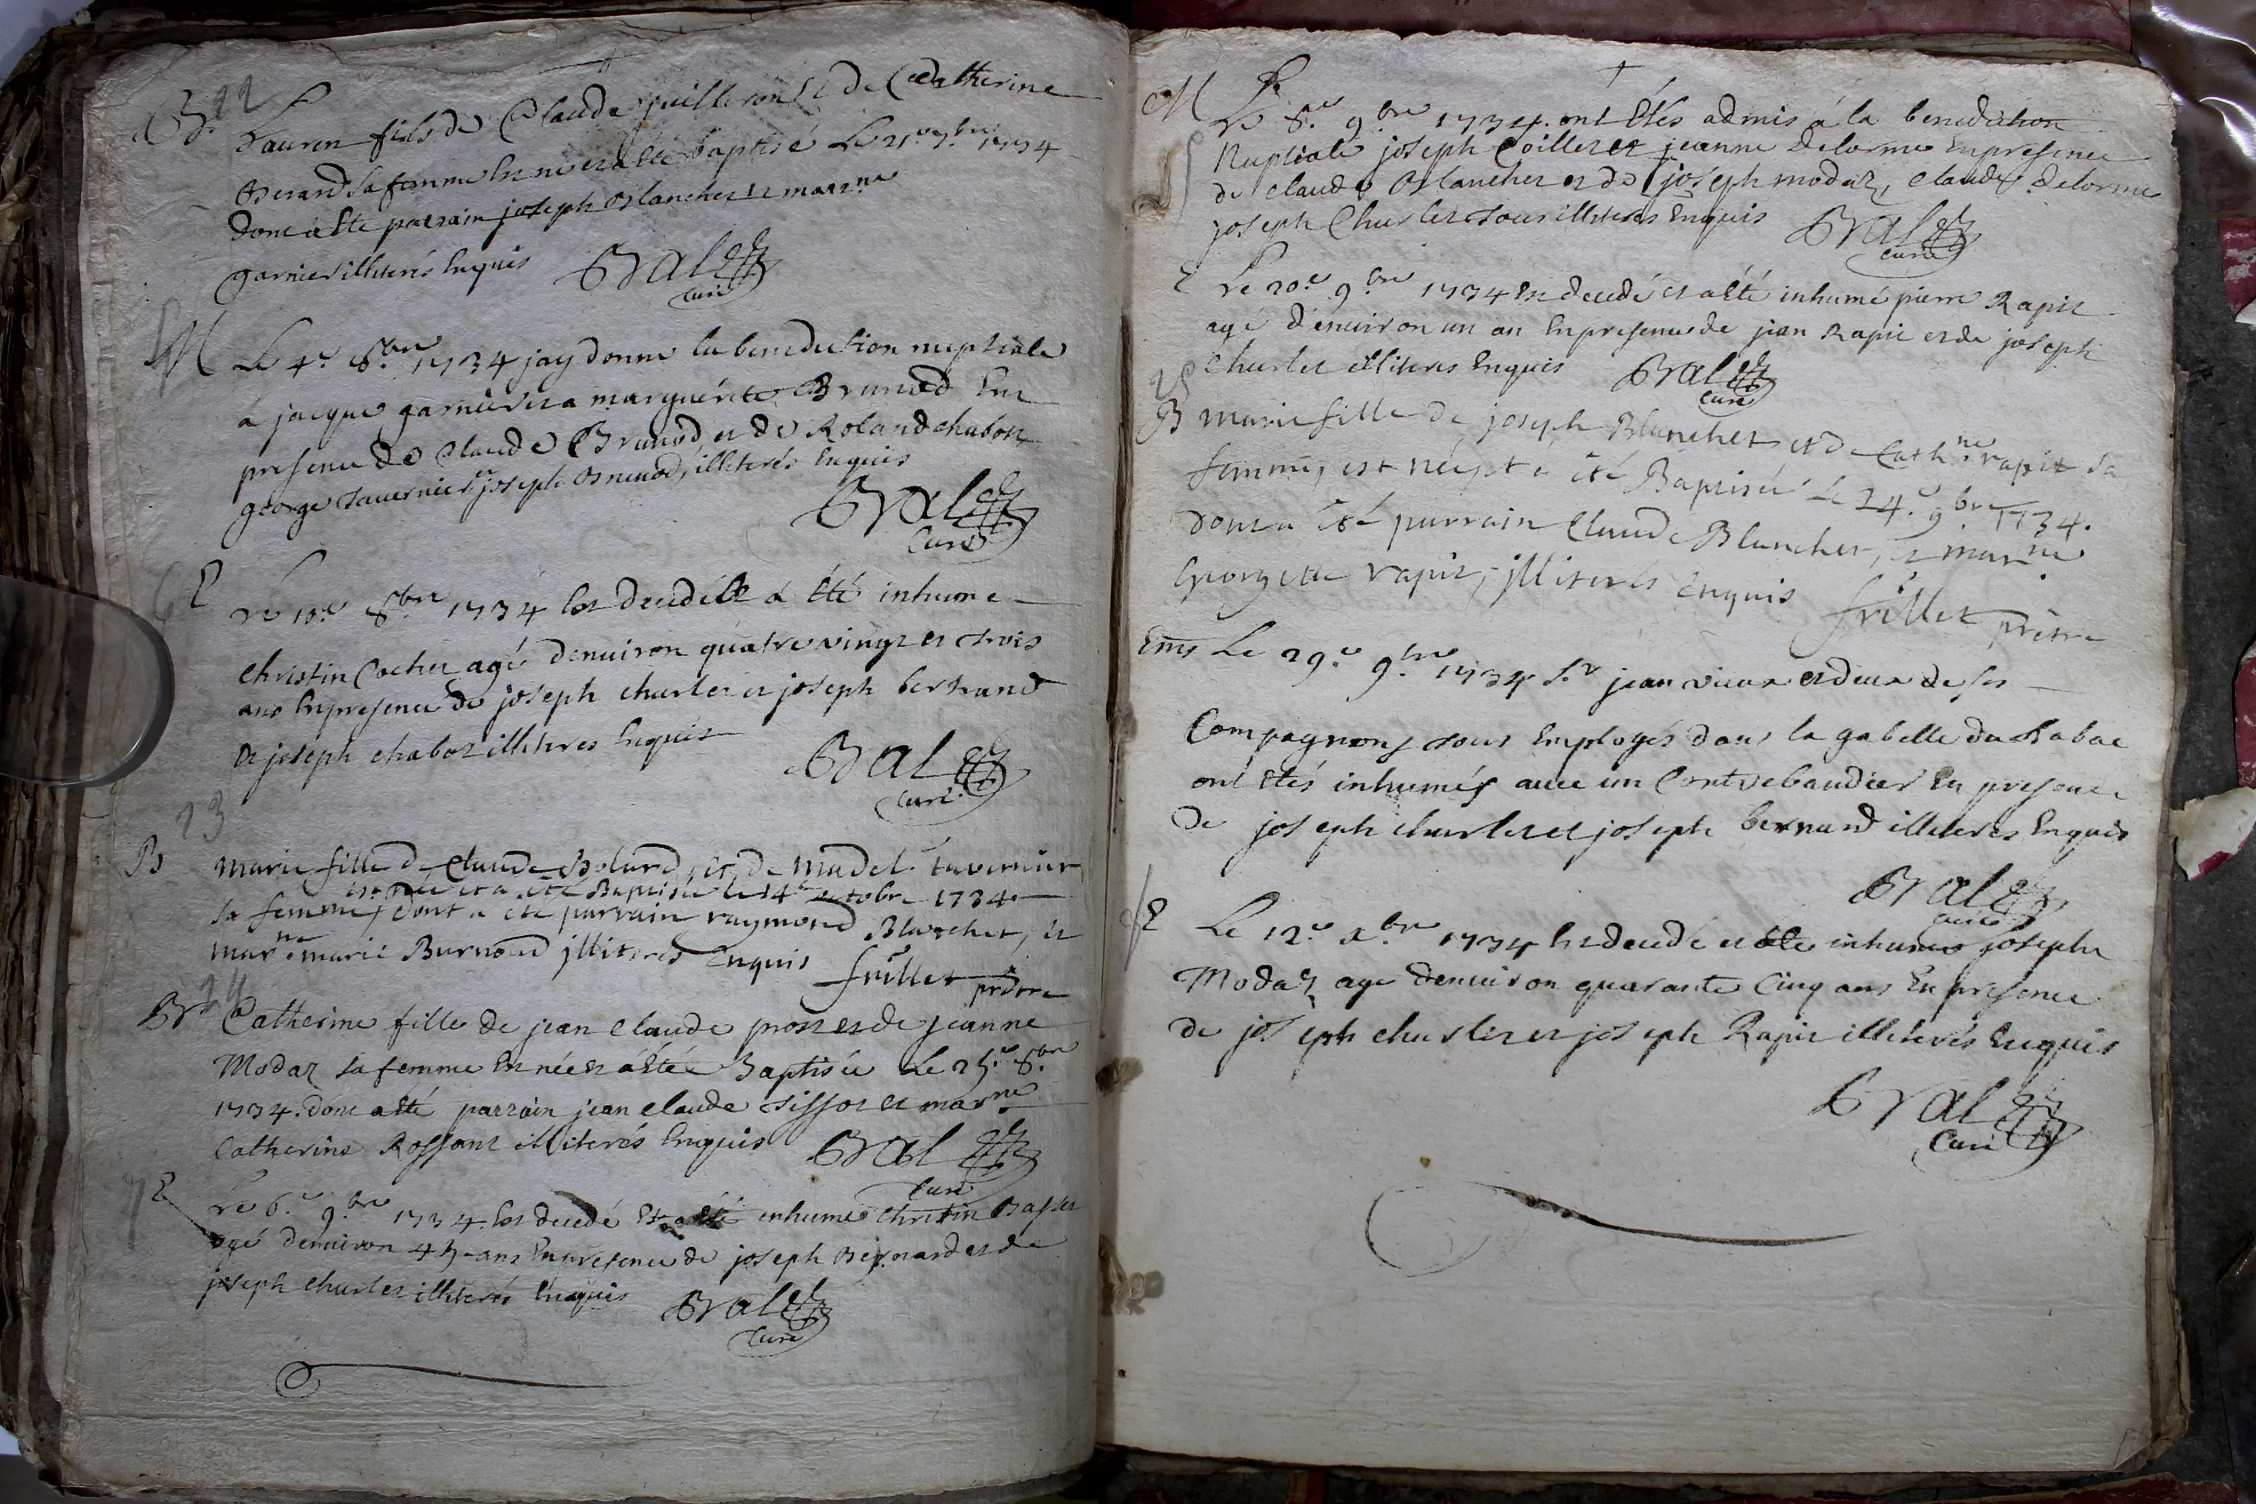 B. 22
Lauren fils de Claude juilleron et de Catherine
Berard sa femme Est né et a Eté baptisé Le 21e 7bre 1734
dont a Eté parrain joseph Blanchet et marne
garnier illiterés Enquis Bral
Curé
M Le 4e 8bre 1734 jay donné la benediction nuptiale
a jacque garnier et a marguérite Brunod En
presence de Claude Brunod et de Roland chabot
george tavernier joseph illiterés Enquis
Bral
Curé
6 E Le 10e 8bre 1734 Est decedé Et a Eté inhumé
christin Cochet agé denuiron quatre vingt et trois
ans En presence de joseph churlet et joseph bertrand
et joseph chabot illiteres Enquis
Bral
Curé
23
B marie fille de Claude et de Madel. tavernier
est née et a été Baptisée le 14e octobre 1734
sa femme, dont a eté parrain raymond Blanchet, et
marne marie Burnoud jlliterés Enquis frillet prêtre
24
B Catherine fille de jean claude prost et de jeanne
Modaz sa femme Est née et a Eté Baptisée Le 25e 8bre
1734. dont a Eté parrain jean claude sissoz et marne
Catherine Rossant illiterés Enquis Bral
Curé
7 E Le 6e 9bre 1734. Est decedé Et a Eté inhumé christin
agé denuiron 45 ans En presence de joseph Bernard et de
joseph churlet illiterés Enquis Bral
Curé
M Le 8e 9bre 1734. ont Etés admis a la benediction
Nuptiale joseph Coillet et jeanne Delorme En presence
de claude Blanchet et de joseph modaz, claude delorme
joseph Churlet tous illiteres Enquis Bral
Curé
E Le 20e 9bre 1734 Est decedé et a Eté inhumé pierre Rapit
agé d'enuiron un an En presence de jean Rapit et de joseph
Churlet illiteres Enquis Bral
Curé
25
B marie fille de joseph Blanchet et de Cathne rapit sa
femme, est née, et a été Baptisée le 24e 9bre 1734.
dont a été parrain Claude Blanchet, et marne
Georgette rapit, jlliterés Enquis frillet prêtre
Ems Le 29e 9bre 1734 Sr jean viaux et deux de ses
Compagnons tous Employés dans la gabelle du tabac
ont Etés inhumés avec un Contrebandier En presence
de joseph churlet et joseph bernard illiteres Enquis
Bral
Curé
E Le 12e xbre 1734 Est decedé et Eté inhumé joseph
Modaz agé denuiron quarante Cinq ans En presence
de joseph churlet et joseph Rapit illiterés Enquis
Bral
Curé